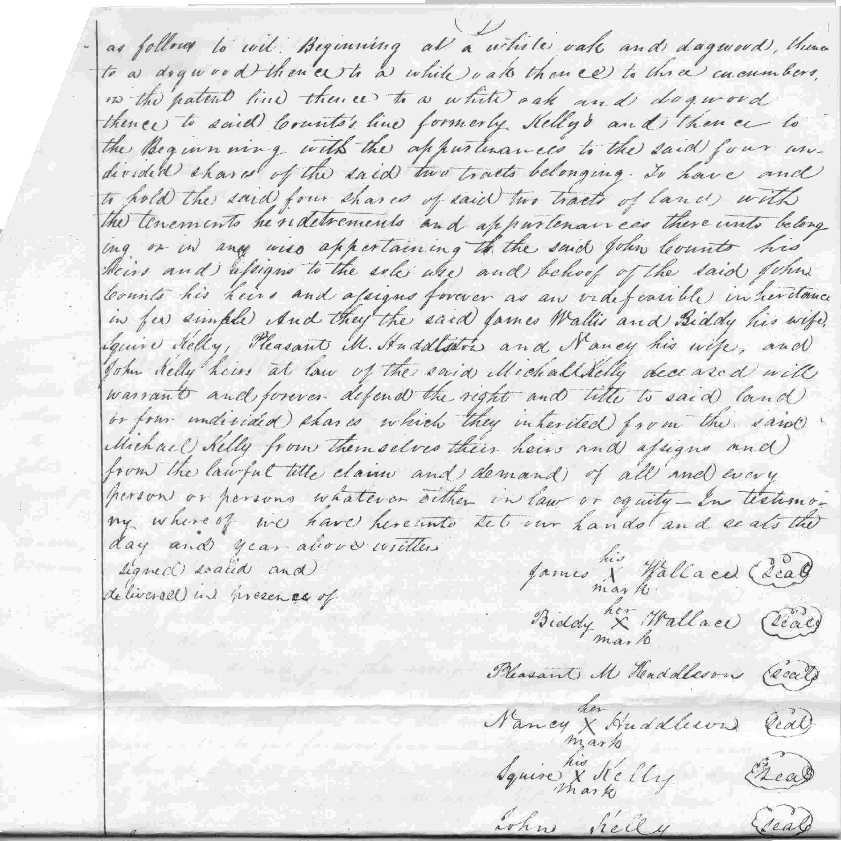 as follows to wit. Beginning at a white oak and dogwood, thence
to a dogwood thence to a white oak thence to three cucumbers,
in the patent line thence to a white oak and dogwood
thence to said Counts's line formerly Kelly's and thence to
the Beginning with the appurtenances to the said four un-
divided shares of the said two tracts belonging. To have and
to hold the said four shares of said two tracts of land with
the tenements heridetrements and appurtenances thereunto belong
ing or in any wise appertaining to the said John Counts his
heirs and assigns to the sole use and behoof of the said John
Counts his heirs and assigns forever as an indefeasible inheritance
in fee simple And they the said James Wallis and Biddy his wife,
Squire Kelly, Pleasant M. Huddleston and Nancy his wife, and
John Kelly heirs at law of the said Michall Kelly deceased will
warrant and forever defend the right and title to said land
or four undivided shares which they inherited from the said
Michael Kelly from themselves their heirs and assigns and
from the lawful title claim and demand of all and every
person or persons whatever either in law or equity — In testimo-
ny whereof we have hereunto set our hands and seals the
day and year above written
signed sealed and
delivered in presence of
his
James X Wallace Seal
mark
her
Biddy X Wallace Seal
mark
Pleasant M Huddleson Seal
her
Nancy X Huddleson Seal
mark
his
Squire X Kelly Seal
mark
John Kelly Seal